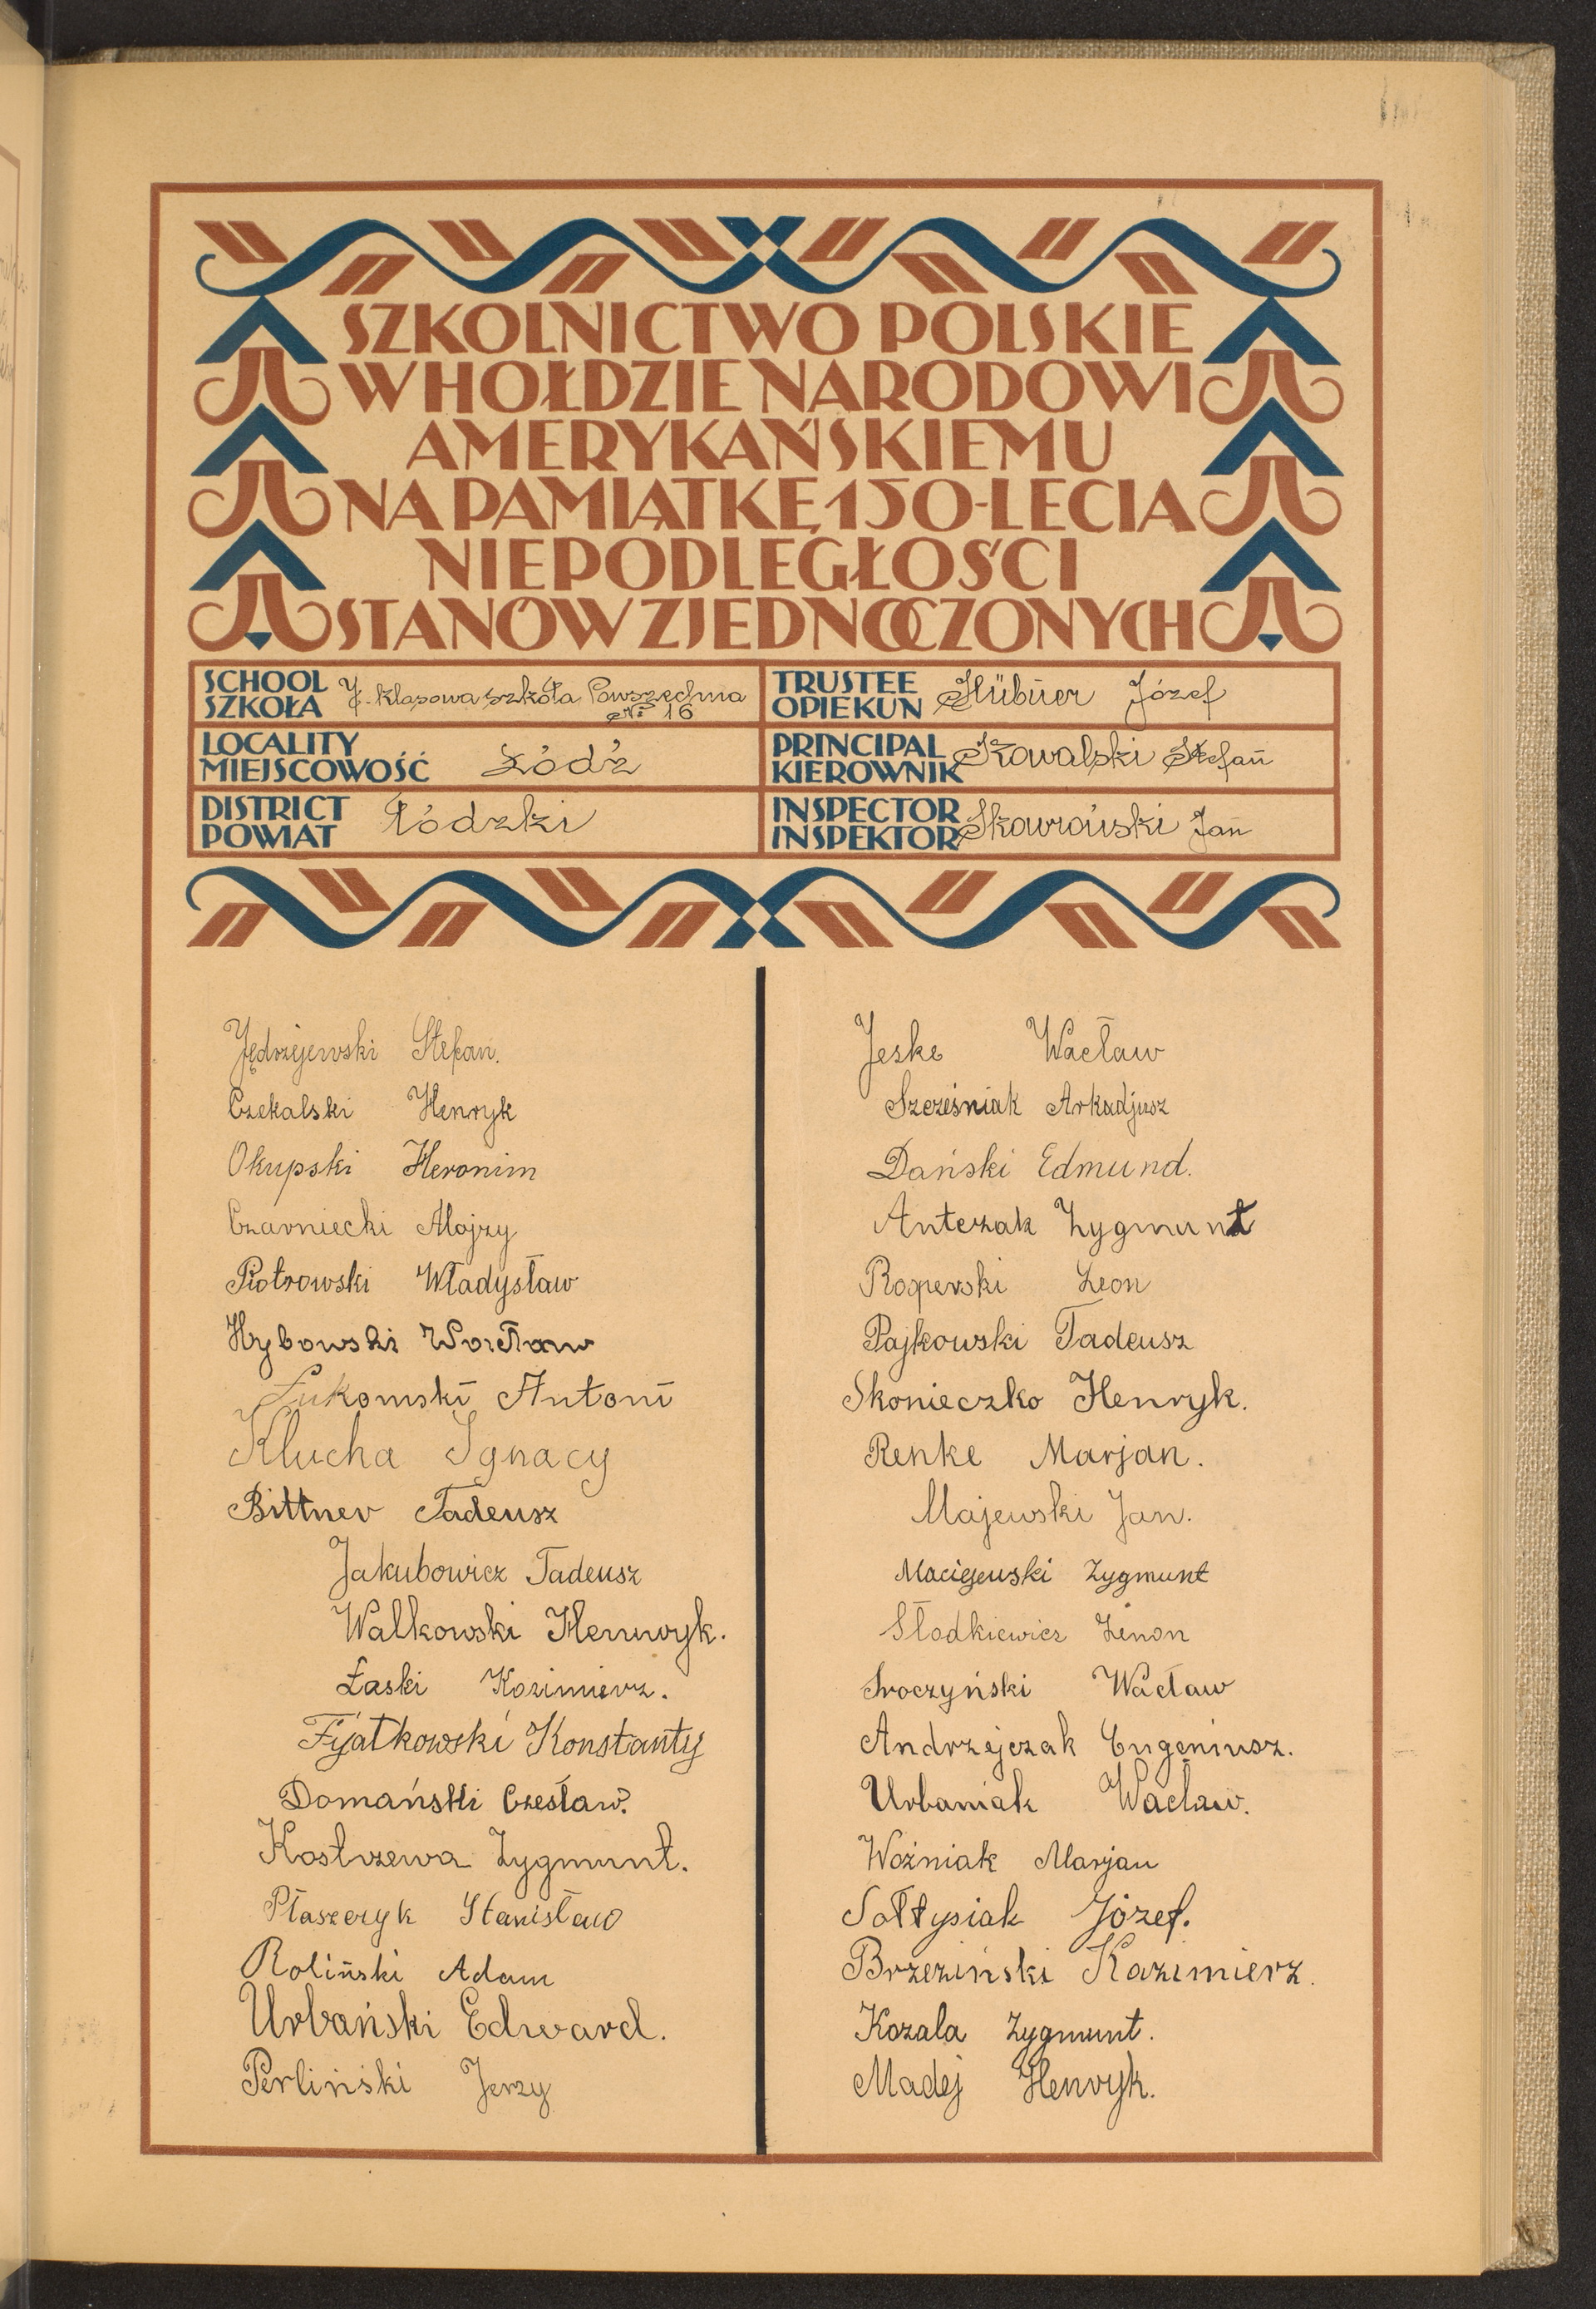 SZKOLNICTWO POLSKIE
W HOŁDZIE NARODOWI
AMERYKAŃSKIEMU
NA PAMIĄTKĘ 150-LECIA
NIEPODLEGŁOŚCI
STANÓW ZJEDNOCZONYCH
SCHOOL
SZKOŁA
7-klasowa szkoła Powszechna
№ 16
TRUSTEE
OPIEKUN
Hübner Józef
LOCALITY
MIEJSCOWOŚĆ
Łódź
PRINCIPAL
KIEROWNIK
Kowalski Stefan
DISTRICT
POWIAT
Łódzki
INSPECTOR
INSPEKTOR
Skowroński Jan
Jędrzejewski Stefan.
Czekalski Henryk
Okupski Heronim
Czarniecki Alojzy
Piotrowski Władysław
Hybowski Wacław
Łukomski Antoni
Klucha Ignacy
Bittner Tadeusz
Jakubowicz Tadeusz
Walkowski Henryk.
Łaski Kazimierz.
Fijatkowski Konstanty
Domański Czesław.
Kostrzewa Zygmunt.
Ptaszczyk Stanisław
Roliński Adam
Urbański Edward.
Perliński Jerzy
Jeske Wacław
Szcześniak Arkadjusz
Dański Edmund.
Antczak Zygmunt
Leon
Pajkowski Tadeusz
Skonieczko Henryk.
Renke Marjan.
Majewski Jan.
Maciejewski Zygmunt
Słodkiewicz Zenon
Sroczyński Wacław
Andrzejczak Eugeniusz.
Urbaniak Wacław.
Woźniak Marjan
Sołtysiak Józef.
Brzeziński Kazimierz.
Kozala Zygmunt.
Madej Henryk.